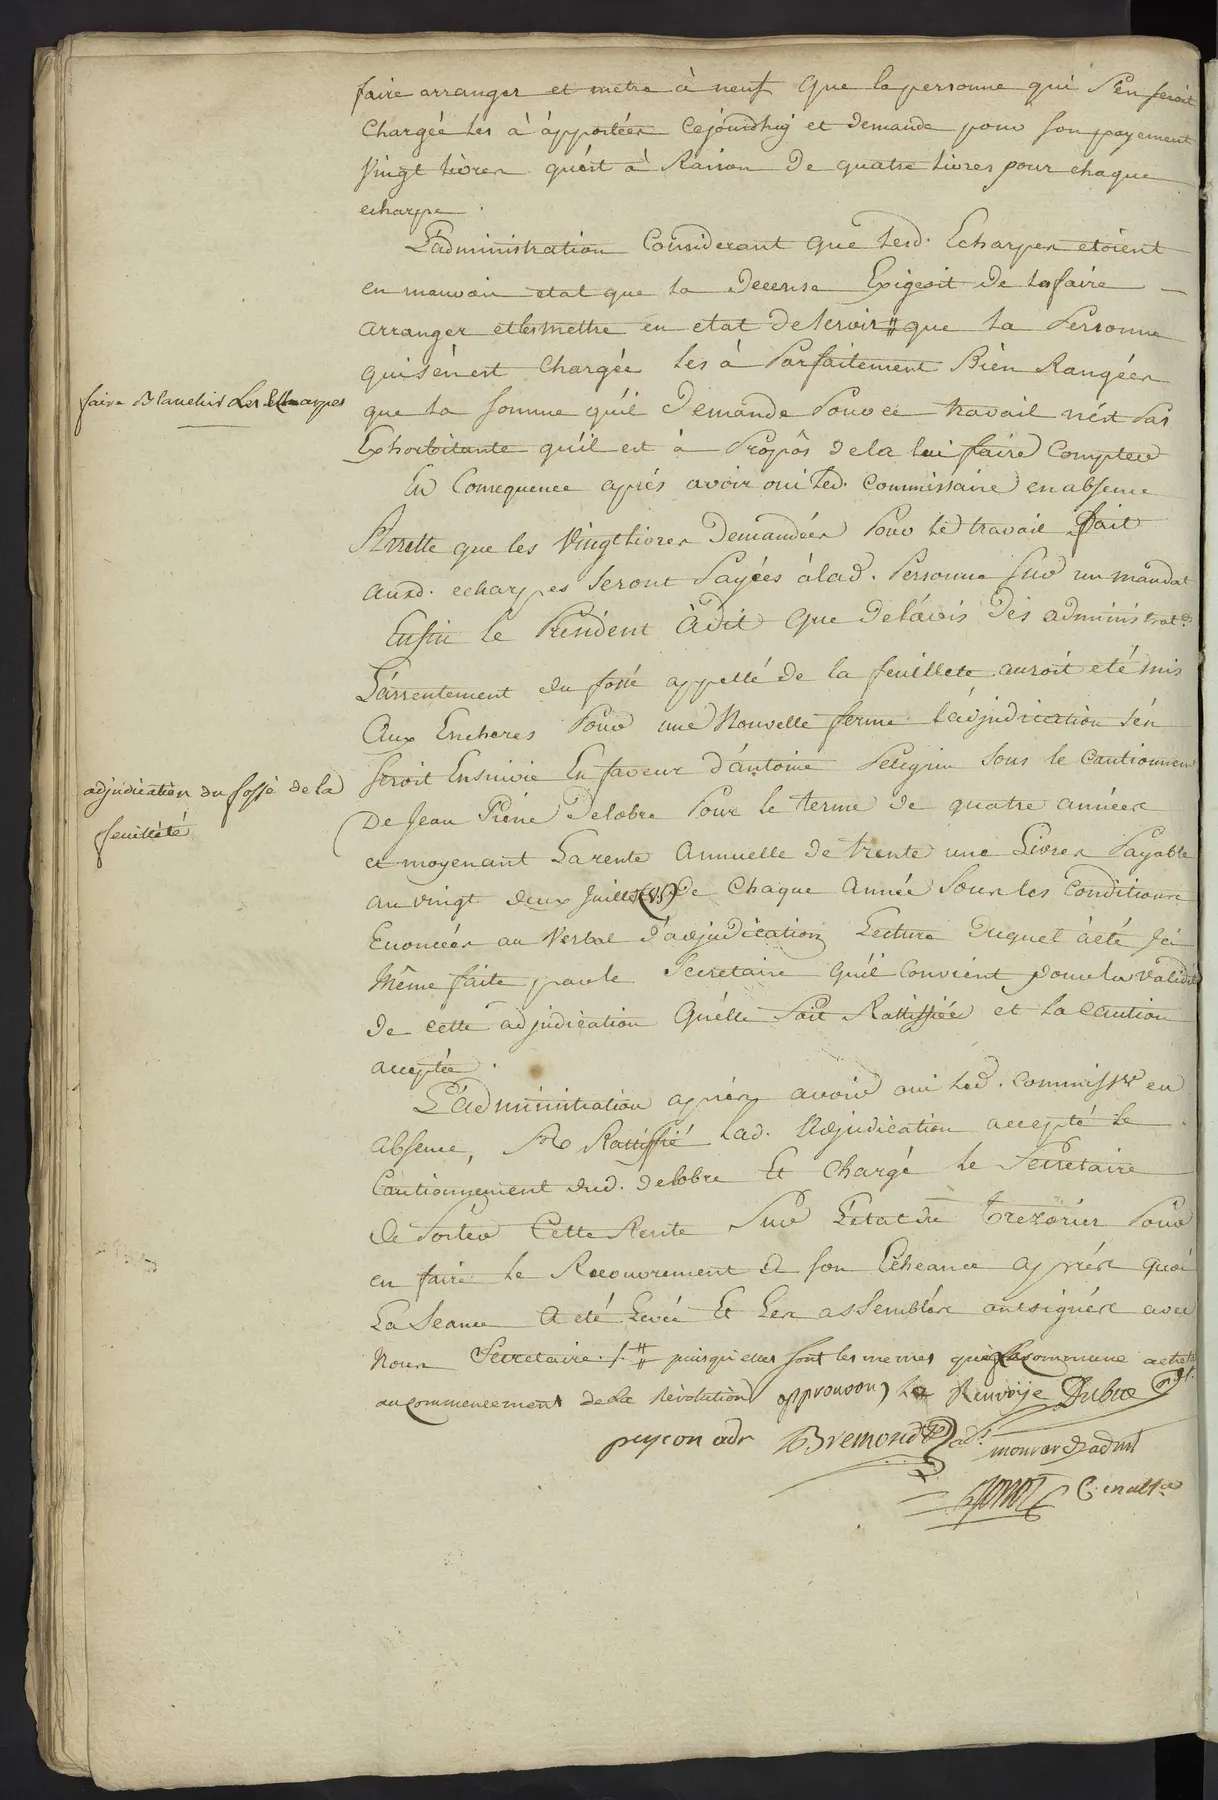 faire arranger et metre à neuf que la personne qui s'en seroit
chargée les à apportées cejourdhuj et demande pour son payement
vingt livres quést à Raison de quatre livres pour chaque
echarpe.
L'administration Considerant que lesd. Echarpes etoient
en mauvais etat que la decense Exigeoit de lesfaire
arranger etlesmettre en etat deservir # que la Personne
quisénest chargée les à Parfaitement Bièn Rangées
faire Blanchir Les Echarpes
que la somme quil demande Pour ce travail nést Pas
Exhorbitante quil est à Propôs dela lui faire Compter
En Consequence aprés avoir oui led. Commissaire enabsence
Arrette que les vingt livres demandées Pour le travail fait
auxd. echarpes seront Payées àlad. Personne sur un mandat
Enfin le Président àdit que delávis dés administrat.rs
Lárrentement du fossé appellé de la feuillete auroit eté mis
Aux Encheres Pour une Nouvelle ferme ládjudication sén
seroit Ensuivie En faveur dántoine Pelegrin sous le cautionnem
adjudication du fossé de la
feuilleté
De Jean Piérre Delobre Pour le terme de quatre années
et moyenant Larente Annuelle de trente une Livres Payable
au vingt deux Juillet (vs) de chaque Année sous les Conditions
Enoncées au Verbal dádjudication Lecture Duquel àété Jci
Même faite parle Secretaire quil Convient pourla validité
de cette adjudication Quélle soit Rattiffiée et la caution
acceptée.
Ládministration aprés avoir oui led. commiss.re en
absence, A Rattiffié lad. Adjudication accepté le
Cautionnement dud. delobre Et chargé le Secretaire
de Porter Cette Rente sur Létat du trezorier Pour
en faire le Recouvrement à son Echeance aprés quoi
La Seance A été Levée Et Les assemblés ontsignés avec
Nous Secretaire ./. # puisqu'elles sont les memes que la commune acheta
aucommencement de la Révolution approuvon, le Renvoije Dubuc p.dt
peycon adr Bremond ad.r mourard admt
C. en abs.ce